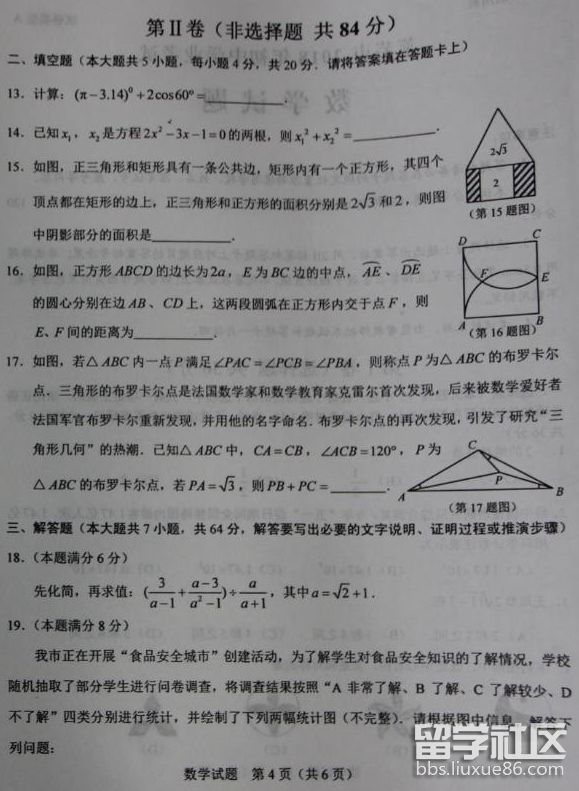 第Ⅱ卷（非选择题 共84分）
二、填空题（本大题共5小题，每小题4分，共20分．请将答案填在答题卡上）
13．计算：(π－3.14)⁰＋2cos60°＝________．
14．已知x₁，x₂是方程2x²－3x－1＝0的两根，则x₁²＋x₂²＝________．
15．如图，正三角形和矩形具有一条公共边，矩形内有一个正方形，其四个
顶点都在矩形的边上，正三角形和正方形的面积分别是2√3和2，则图
中阴影部分的面积是________．
2√3
2
（第15题图）
16．如图，正方形ABCD的边长为2a，E为BC边的中点，AE、DE
的圆心分别在边AB、CD上，这两段圆弧在正方形内交于点F，则
E、F间的距离为________．
D
C
F
E
A
B
（第16题图）
17．如图，若△ABC内一点P满足∠PAC＝∠PCB＝∠PBA，则称点P为△ABC的布罗卡尔
点．三角形的布罗卡尔点是法国数学家和数学教育家克雷尔首次发现，后来被数学爱好者
法国军官布罗卡尔重新发现，并用他的名字命名．布罗卡尔点的再次发现，引发了研究“三
角形几何”的热潮．已知△ABC中，CA＝CB，∠ACB＝120°，P为
△ABC的布罗卡尔点，若PA＝√3，则PB＋PC＝________．
C
P
A
B
（第17题图）
三、解答题（本大题共7小题，共64分，解答要写出必要的文字说明、证明过程或推演步骤）
18．（本题满分6分）
先化简，再求值：(3/(a－1)＋(a－3)/(a²－1))÷a/(a＋1)，其中a＝√2＋1．
19．（本题满分8分）
我市正在开展“食品安全城市”创建活动，为了解学生对食品安全知识的了解情况，学校
随机抽取了部分学生进行问卷调查，将调查结果按照“A 非常了解、B 了解、C 了解较少、D
不了解”四类分别进行统计，并绘制了下列两幅统计图（不完整）．请根据图中信息，解答下
列问题：
数学试题 第4页（共6页）
留学社区
bbs.liuxue86.com